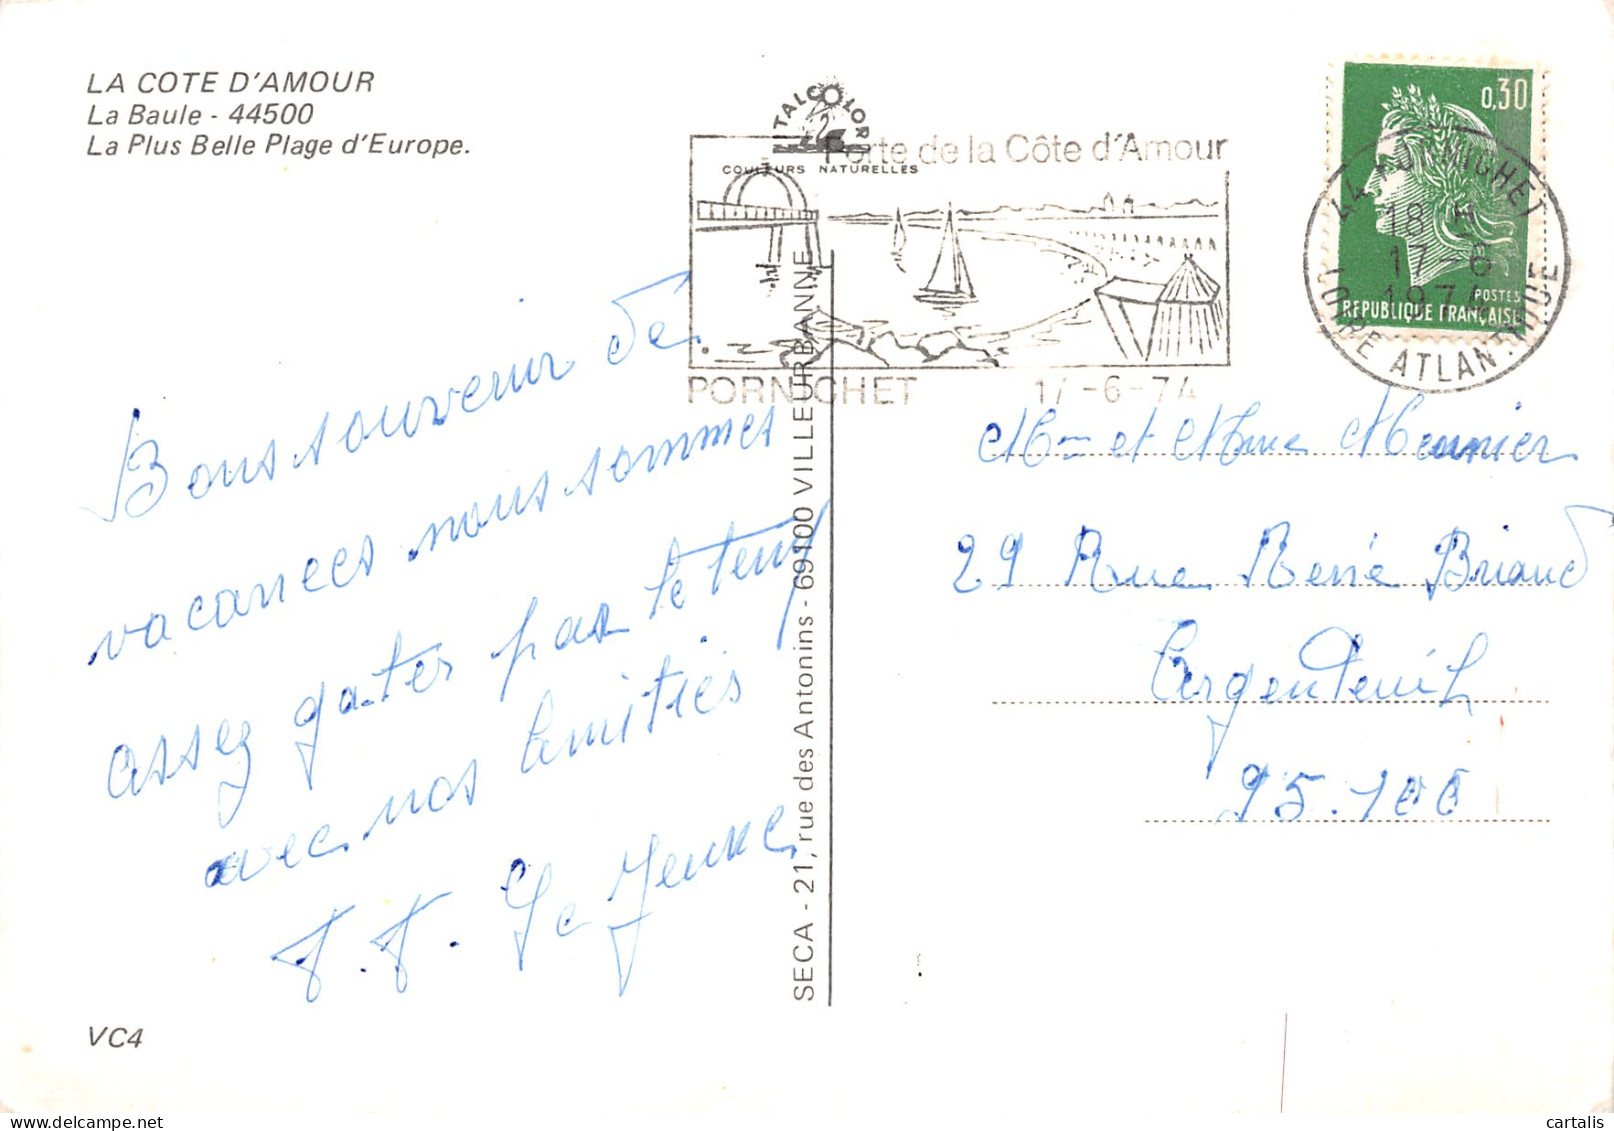 LA COTE D'AMOUR
La Baule - 44500
La Plus Belle Plage d'Europe.
TALCOLOR
COULEURS NATURELLES
Porte de la Côte d'Amour
PORNICHET 17-6-74
0,30
POSTES
REPUBLIQUE FRANÇAISE
44 PORNICHET
18 H
17-6
1974
LOIRE ATLANTIQUE
Bons souvenir de
vacances nous sommes
assez gater par le temp
avec nos amitiés
F. F. Le Jeune
SECA - 21, rue des Antonins - 69100 VILLEURBANNE
Mr et Mme Meunier
29 Rue René Briand
Argenteuil
95.100
VC4
cartalis
www.delcampe.net